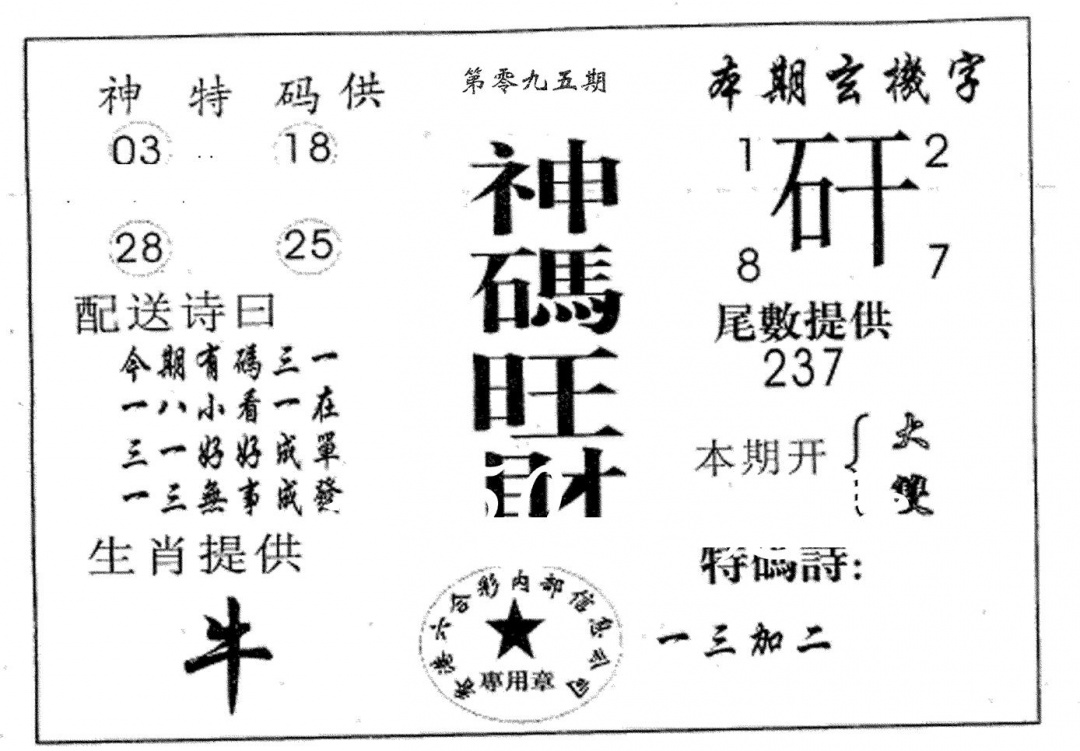 神特码供
03 18
28 25
配送诗曰
今期有碼三一
一八小看一在
三一好好成單
一三無事成發
生肖提供
牛
第零九五期
神
碼
旺
財
香港六合彩內部信息公司
專用章
本期玄機字
1 矸 2
8 7
尾數提供
237
本期开 大
雙
特碼詩:
一三加二